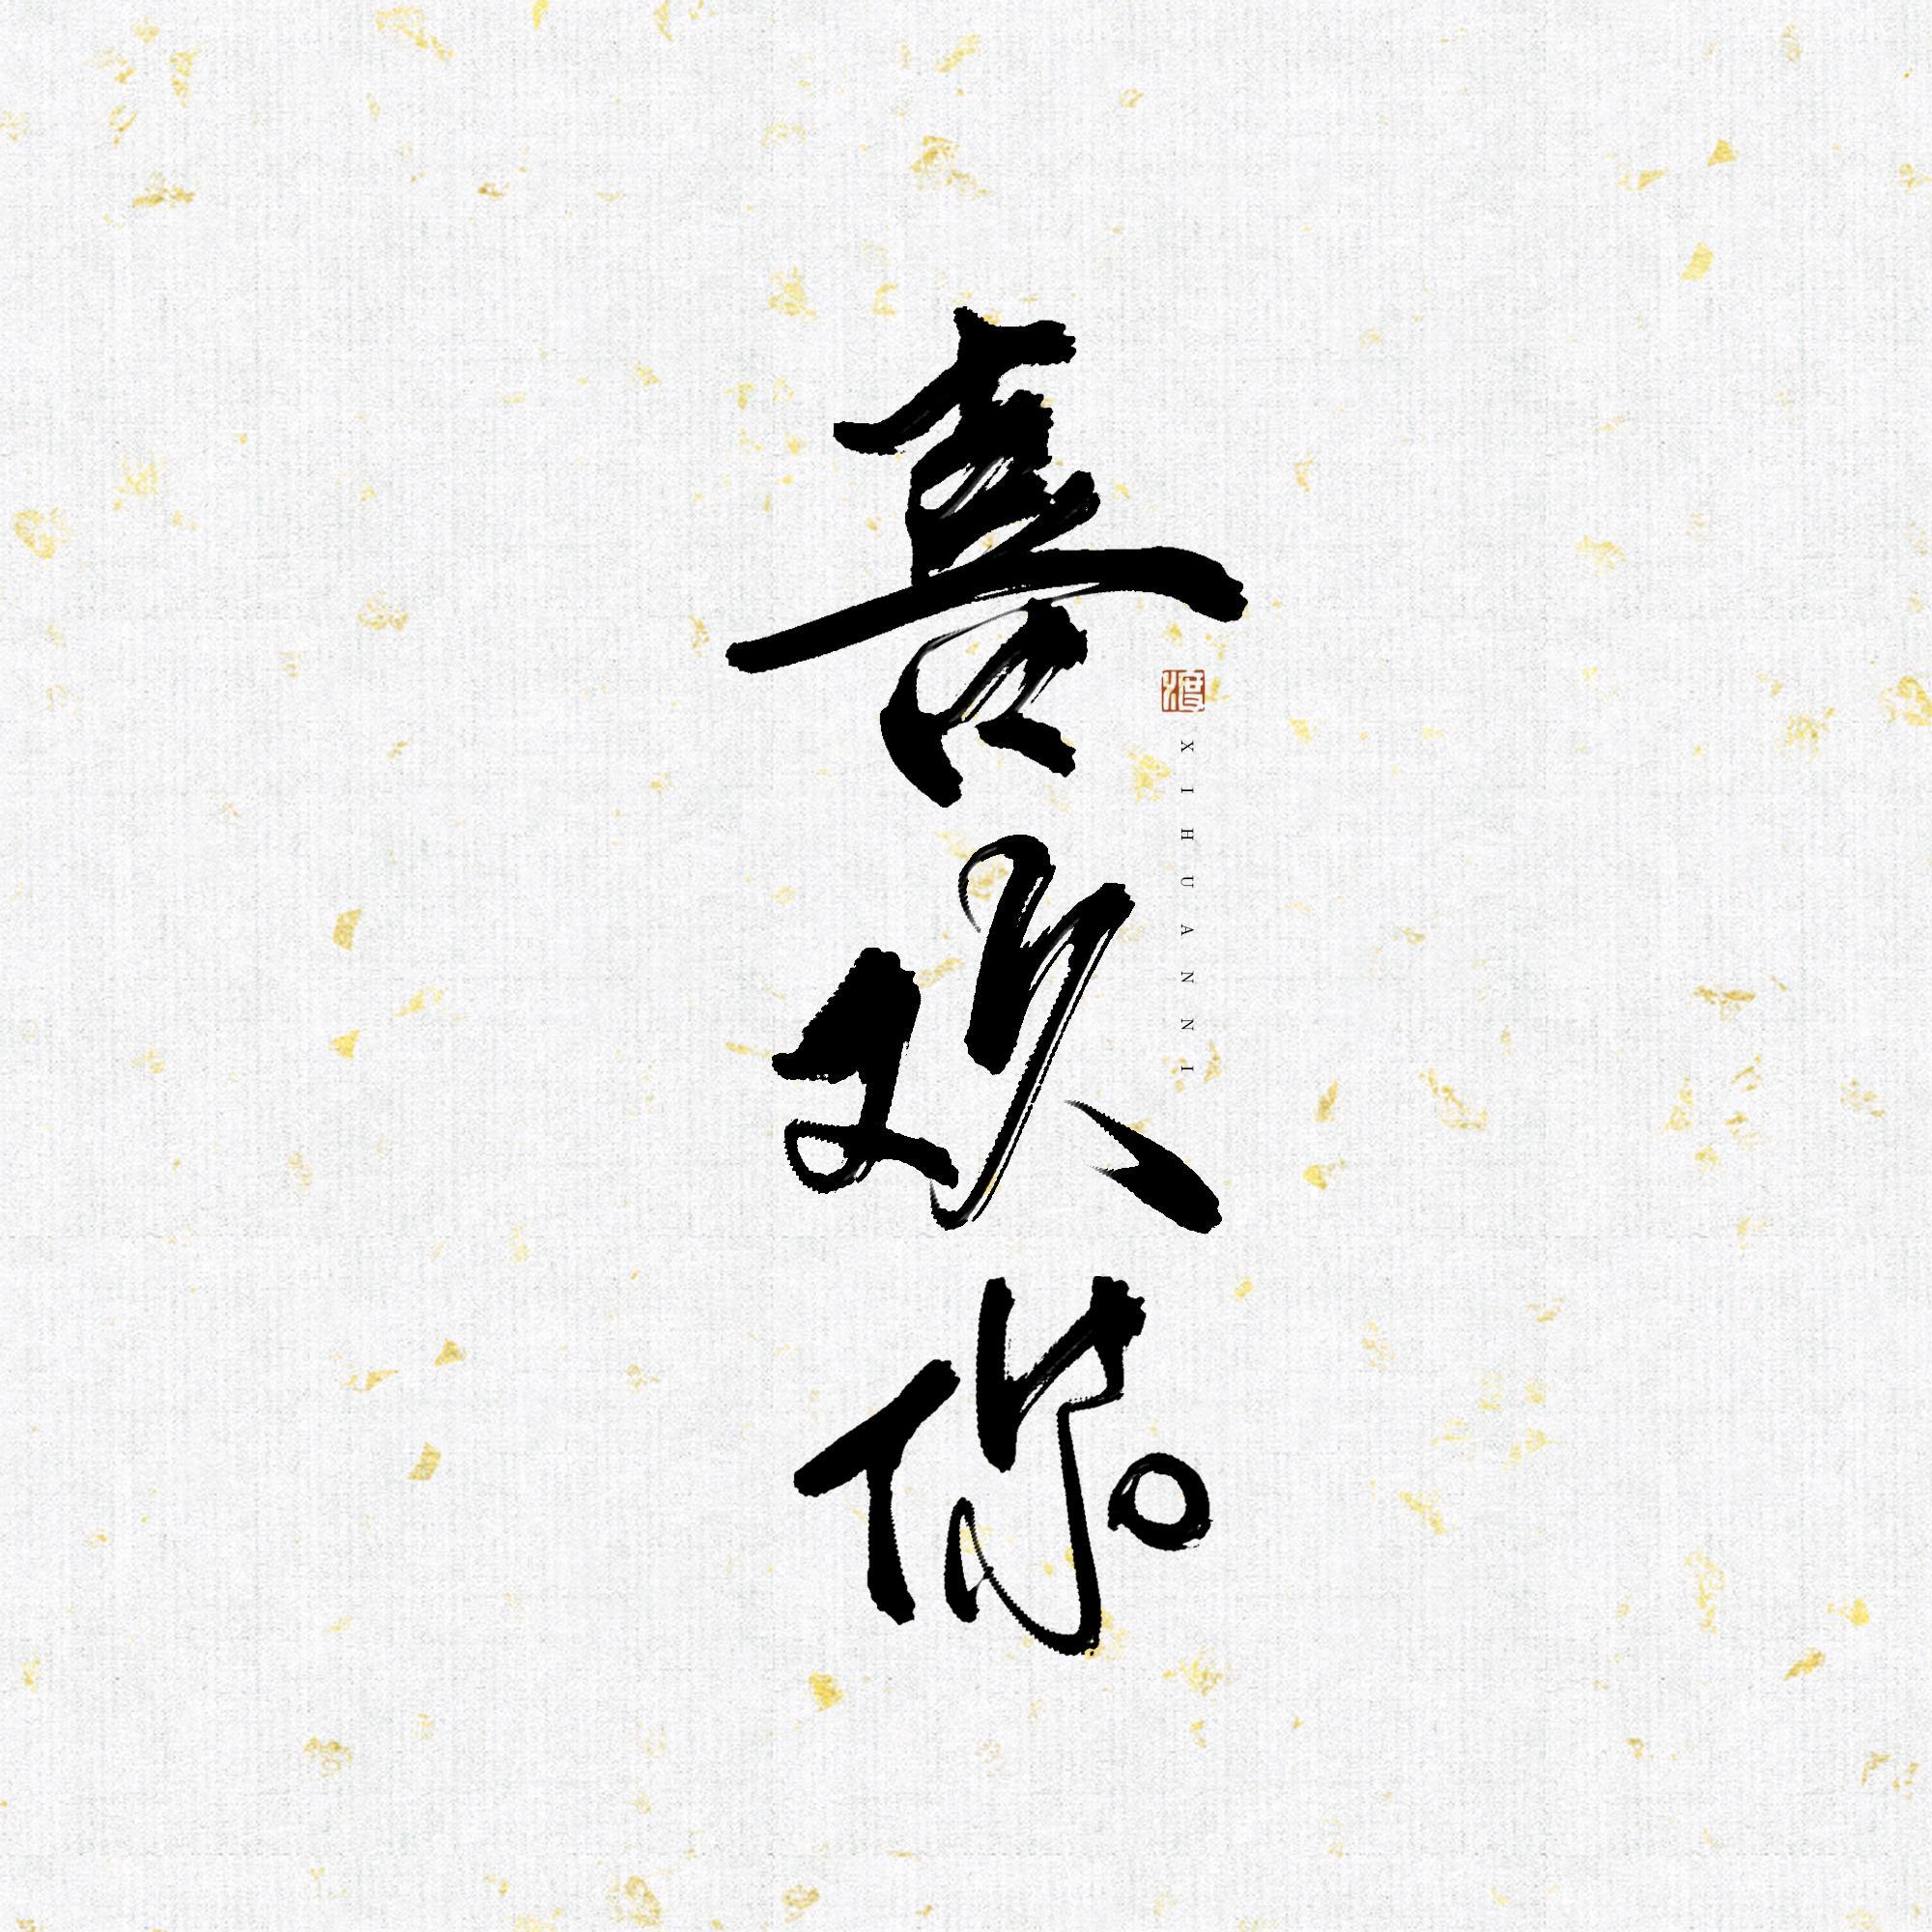 喜欢你。
渡
XIHUANNI